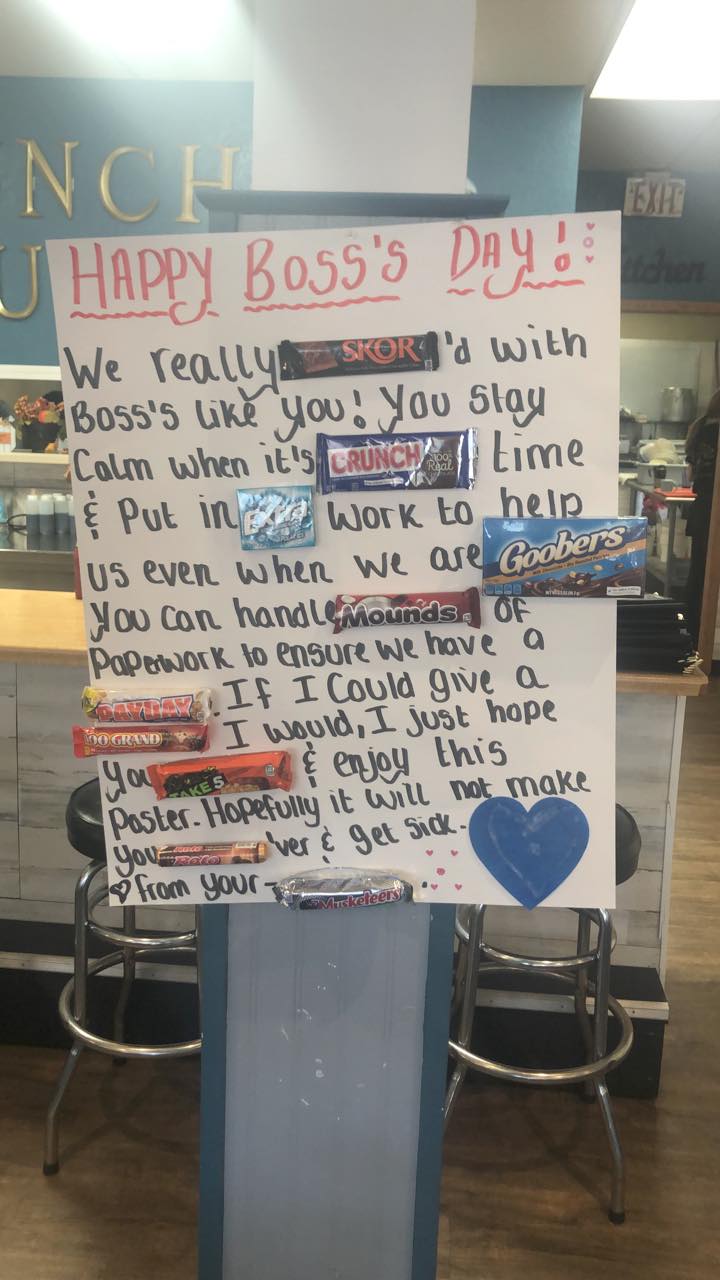 NCH
U
EXIT
itchen
HAPPY BOSS'S DAY!
We really SKOR 'd with
Boss's like you! You stay
Calm when it's CRUNCH time
& Put in Extra work to help
us even when we are Goobers
You can handle Mounds of
Paperwork to ensure we have a
PAYDAY. If I Could give a
100 GRAND I would, I just hope
you TAKE 5 & enjoy this
Poster. Hopefully it will not make
you Rolo 'ver & get sick.
from your - 3 Musketeers.